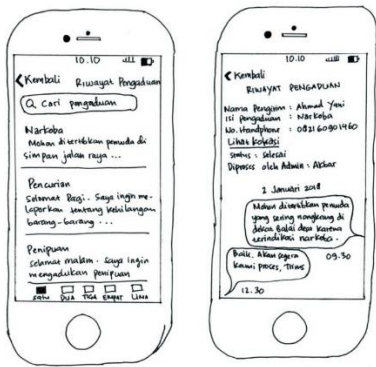 10.10
Kembali Riwayat Pengaduan
Cari pengaduan
Narkoba
Mohon ditertibkan pemuda di
simpan jalan raya ...
Pencurian
Selamat Pagi. Saya ingin me-
laporkan tentang kehilangan
barang-barang ...
Penipuan
selamat malam. saya ingin
mengadukan penipuan
SATU DUA TIGA EMPAT LIMA
10.10
Kembali
RIWAYAT PENGADUAN
Nama Pengirim : Ahmad Yani
Isi pengaduan : Narkoba
No. Handphone : 082160901460
Lihat lokasi
status : selesai
Diproses oleh Admin : Akbar
2 Januari 2018
Mohon ditertibkan pemuda
yang sering nongkrong di
dekat Balai desa karena
terindikasi narkoba.
09.30
Baik, Akan segera
kami proses, Trims
12.30